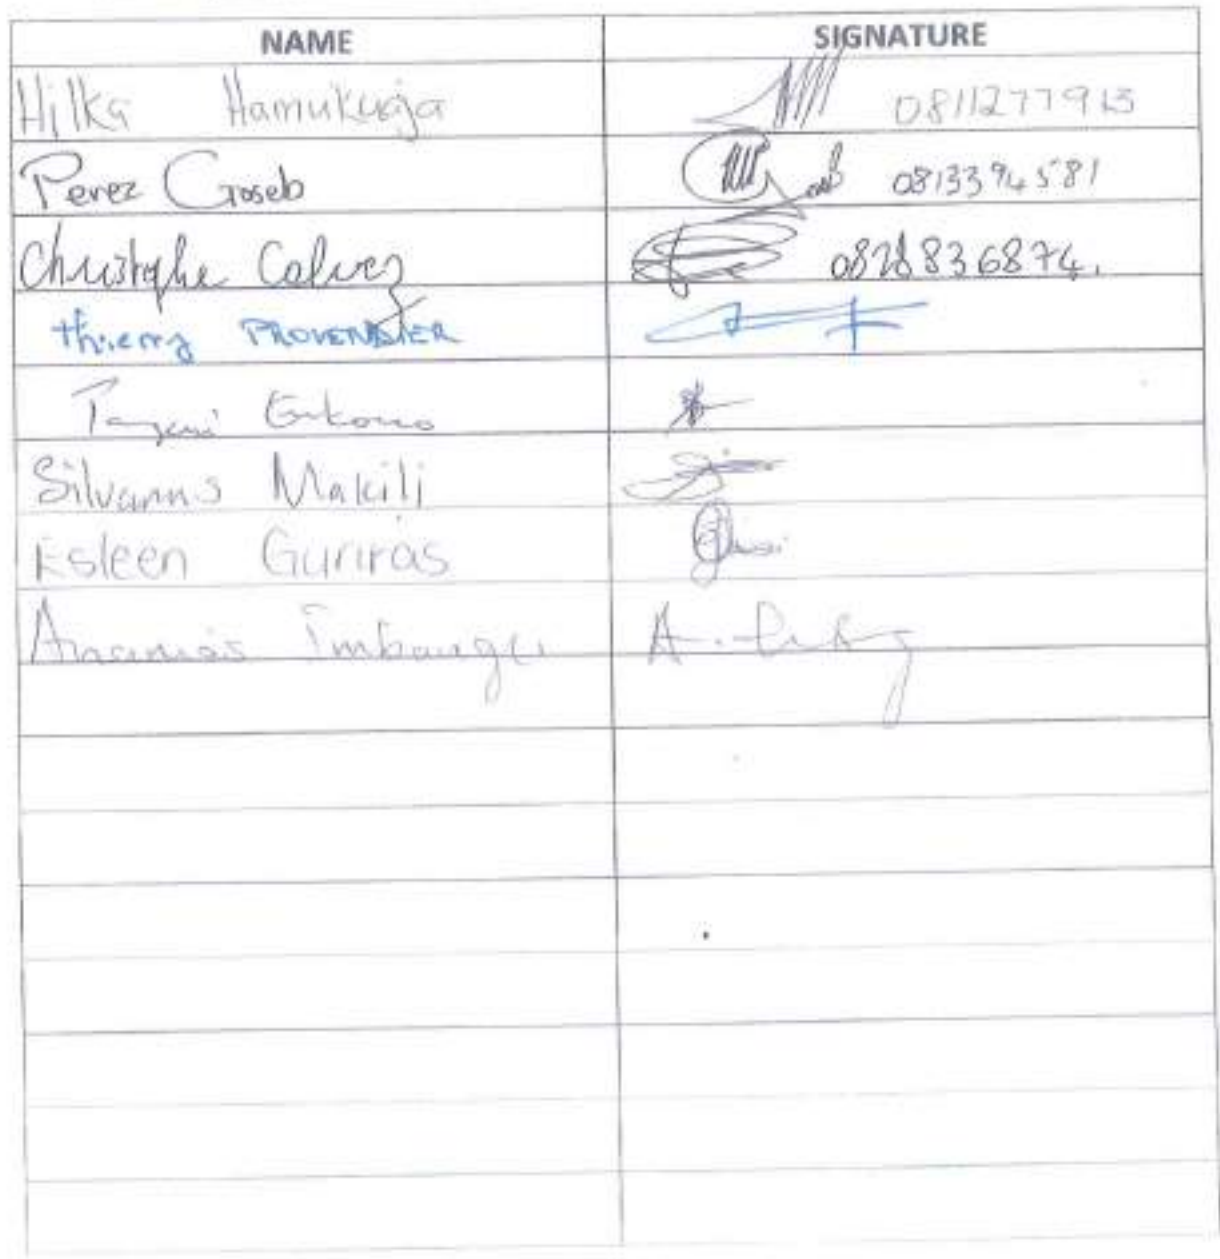 NAME SIGNATURE
Hilka Hamukuaja 0811277913
Perez Goseb 0813394581
Christophe Calvez 0828836874.
thierry PROVENDIER
Silvanus Makili
Esleen Guriras
Ananias Imbangu A.